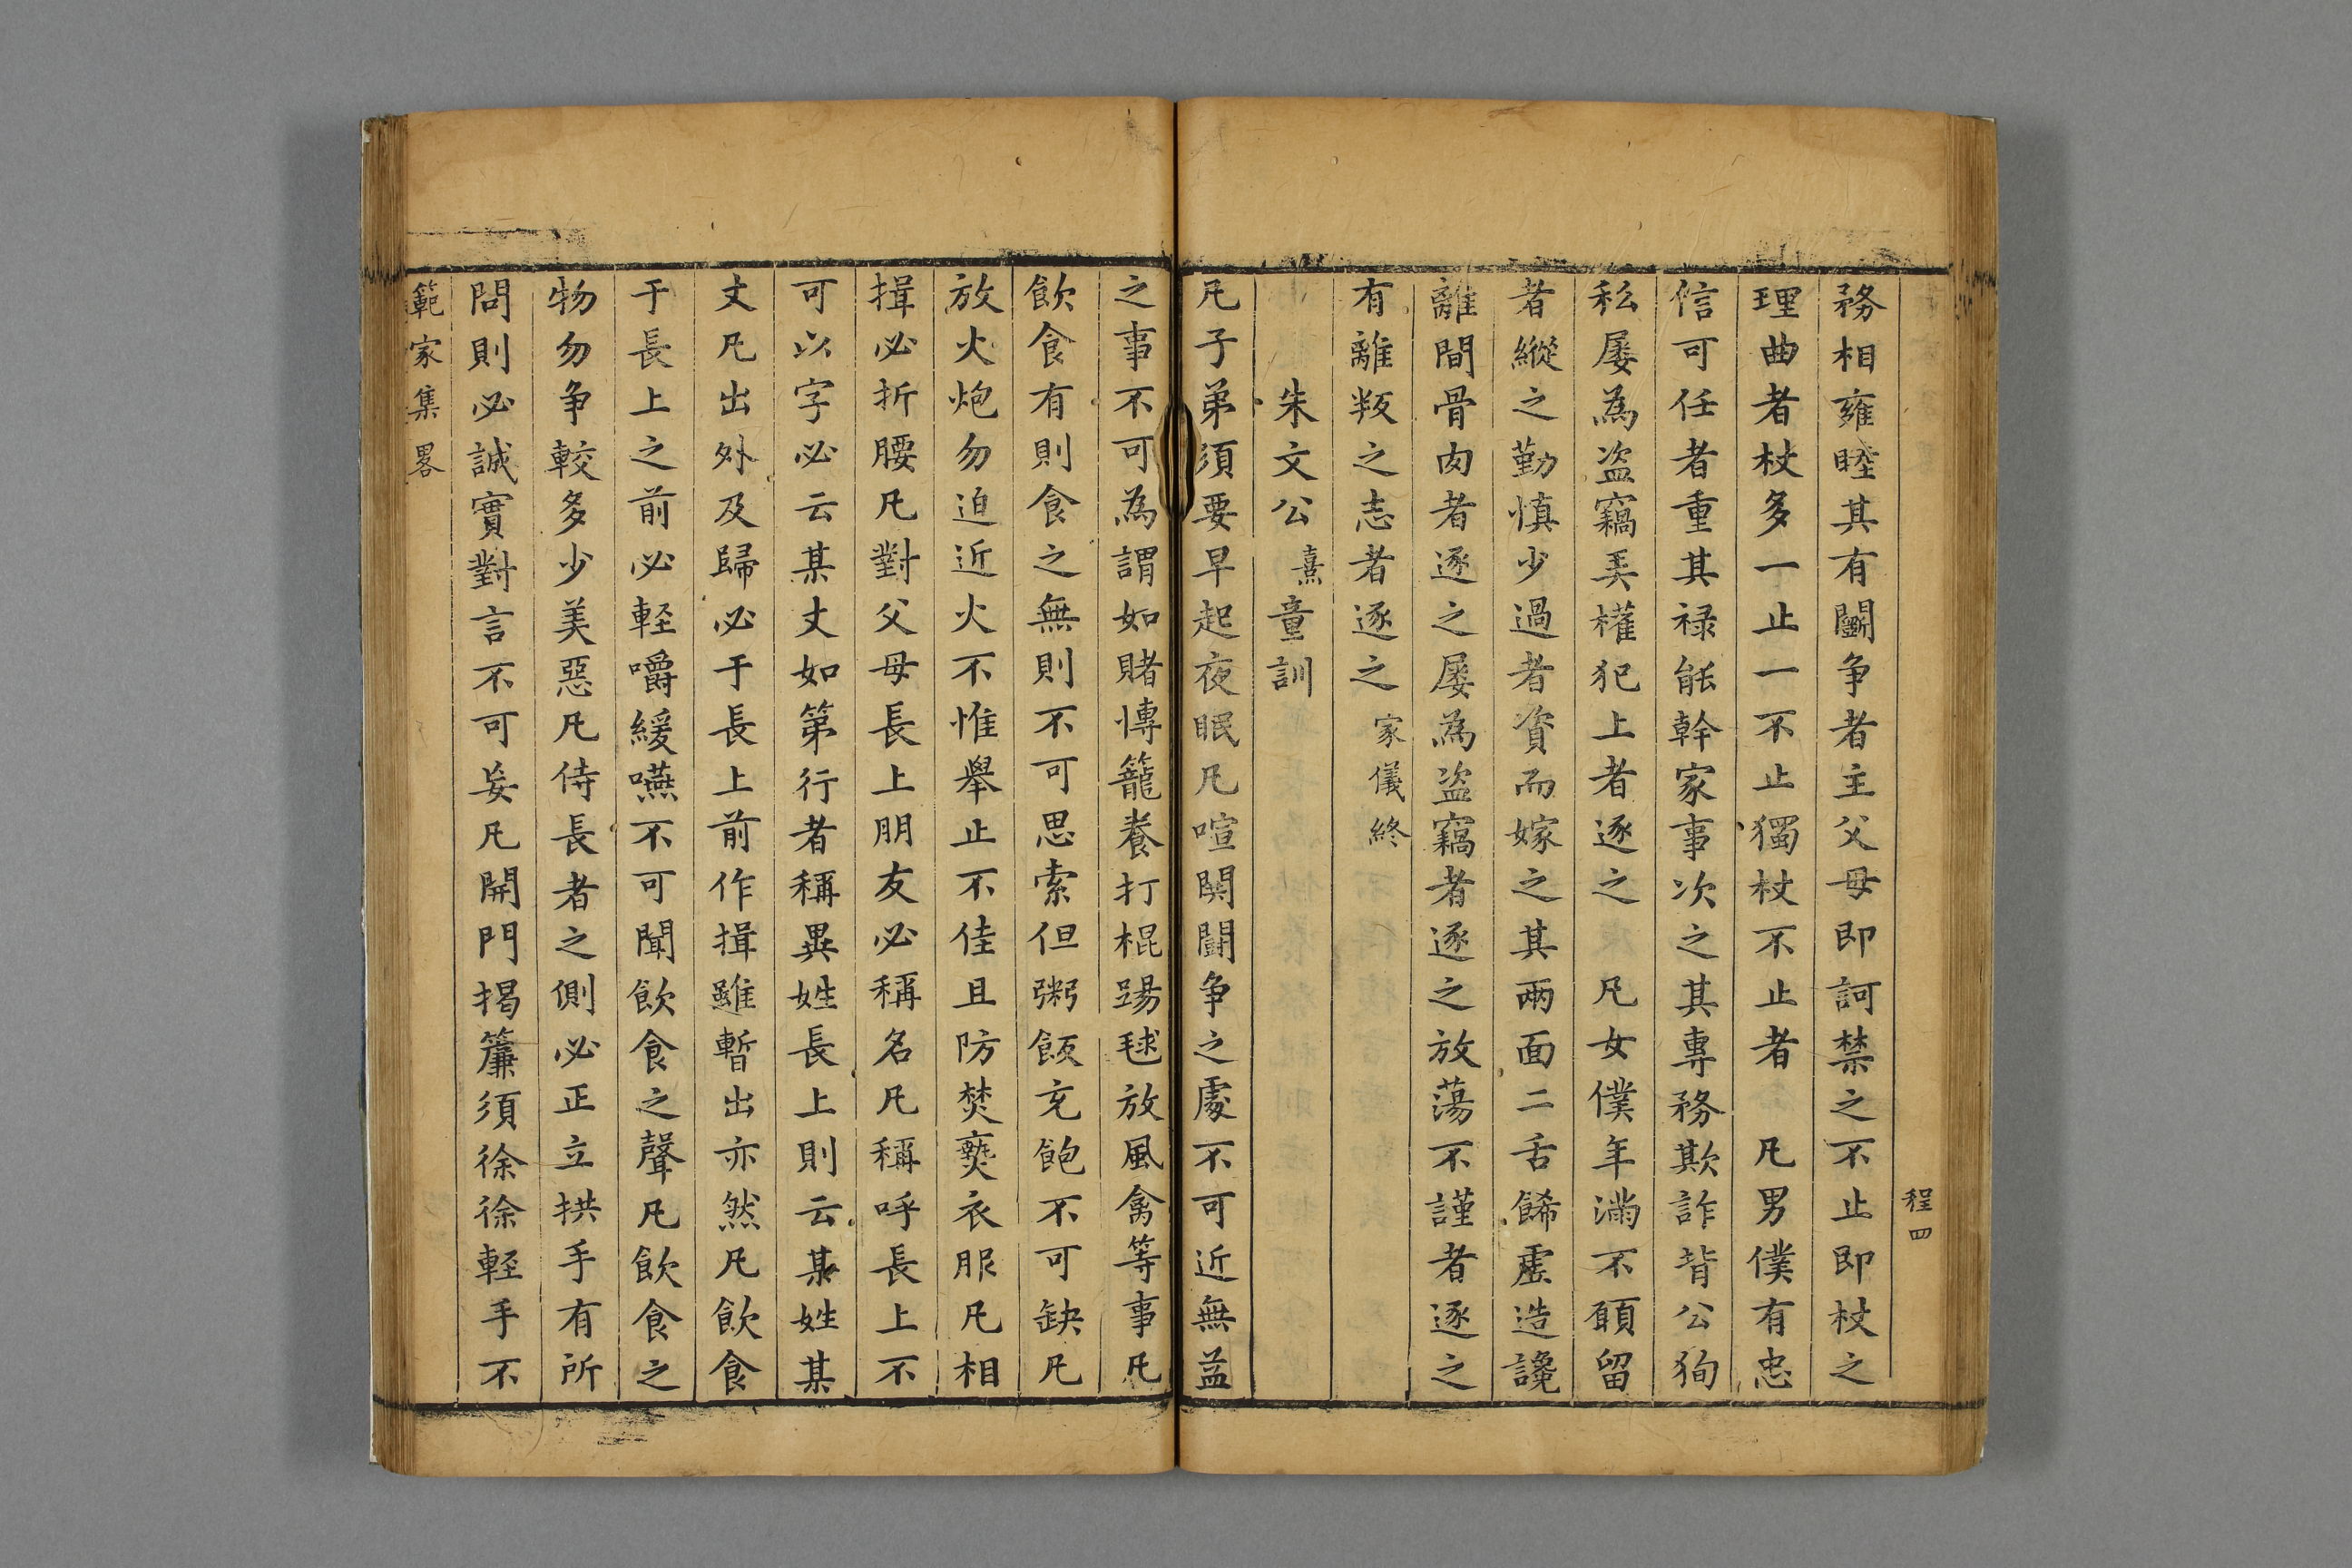 程四
務相雍睦其有鬭争者主父母即訶禁之不止即杖之
理曲者杖多一止一不止獨杖不止者　凡男僕有忠
信可任者重其禄能幹家事次之其專務欺詐背公狥
私屡為盗竊弄權犯上者逐之　凡女僕年滿不願留
者縱之勤慎少過者資而嫁之其兩面二舌餙虛造讒
離間骨肉者逐之屡為盗竊者逐之放蕩不謹者逐之
有離叛之志者逐之　家儀終
朱文公熹童訓
凡子弟須要早起夜眠凡喧鬨鬭争之處不可近無益
之事不可為謂如賭愽籠養打棍踢毬放風禽等事凡
飲食有則食之無則不可思索但粥飯充飽不可缺凡
放火炮勿迫近火不惟舉止不佳且防焚爇衣服凡相
揖必折腰凡對父母長上朋友必稱名凡稱呼長上不
可以字必云某丈如第行者稱異姓長上則云某姓某
丈凡出外及歸必于長上前作揖雖暫出亦然凡飲食
于長上之前必軽嚼緩嚥不可聞飲食之聲凡飲食之
物勿争較多少美惡凡侍長者之側必正立拱手有所
問則必誠實對言不可妄凡開門揭簾須徐徐軽手不
範家集畧